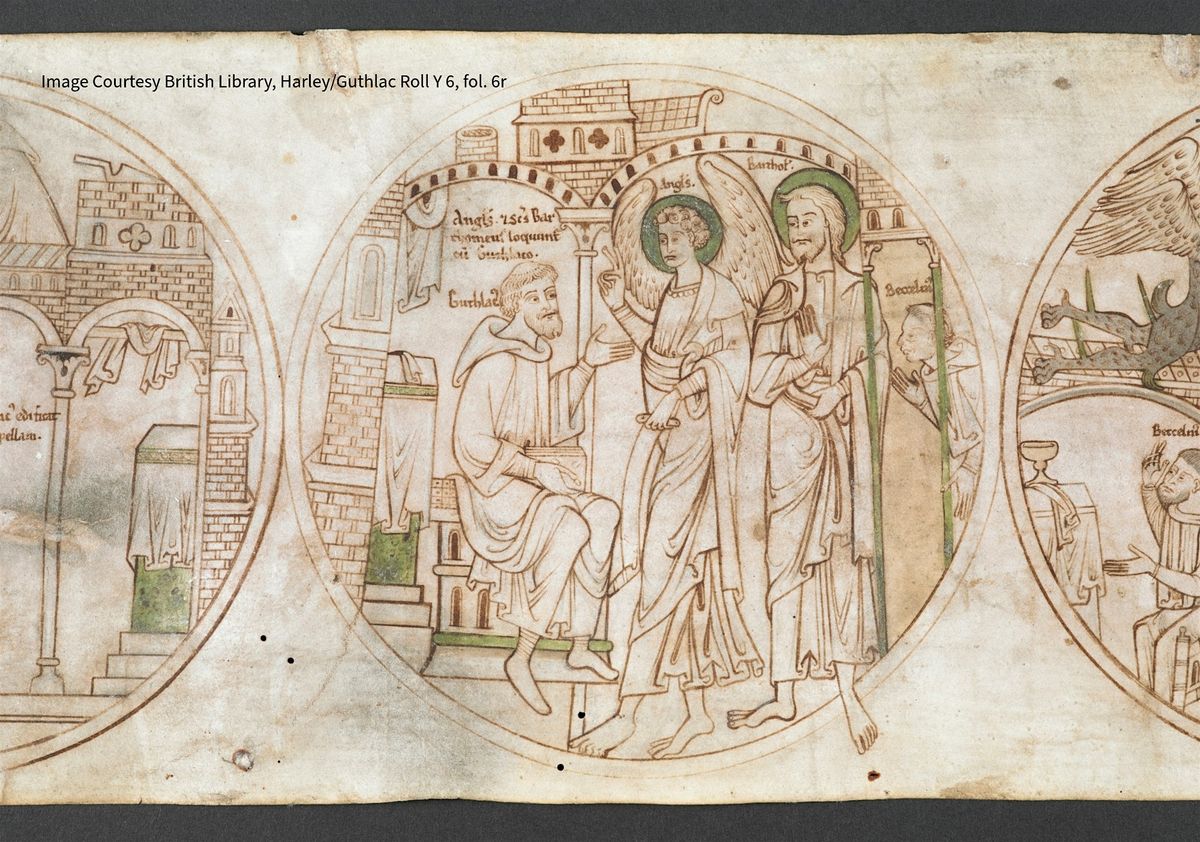 Image Courtesy British Library, Harley/Guthlac Roll Y 6, fol. 6r
edificat
pellam.
Angl'. 7 sc's Bar
tholomeus loquunt'
cū Guthlaco.
Guthlac'
Angl's.
Barthol'.
Beccelin'
Beccelin'